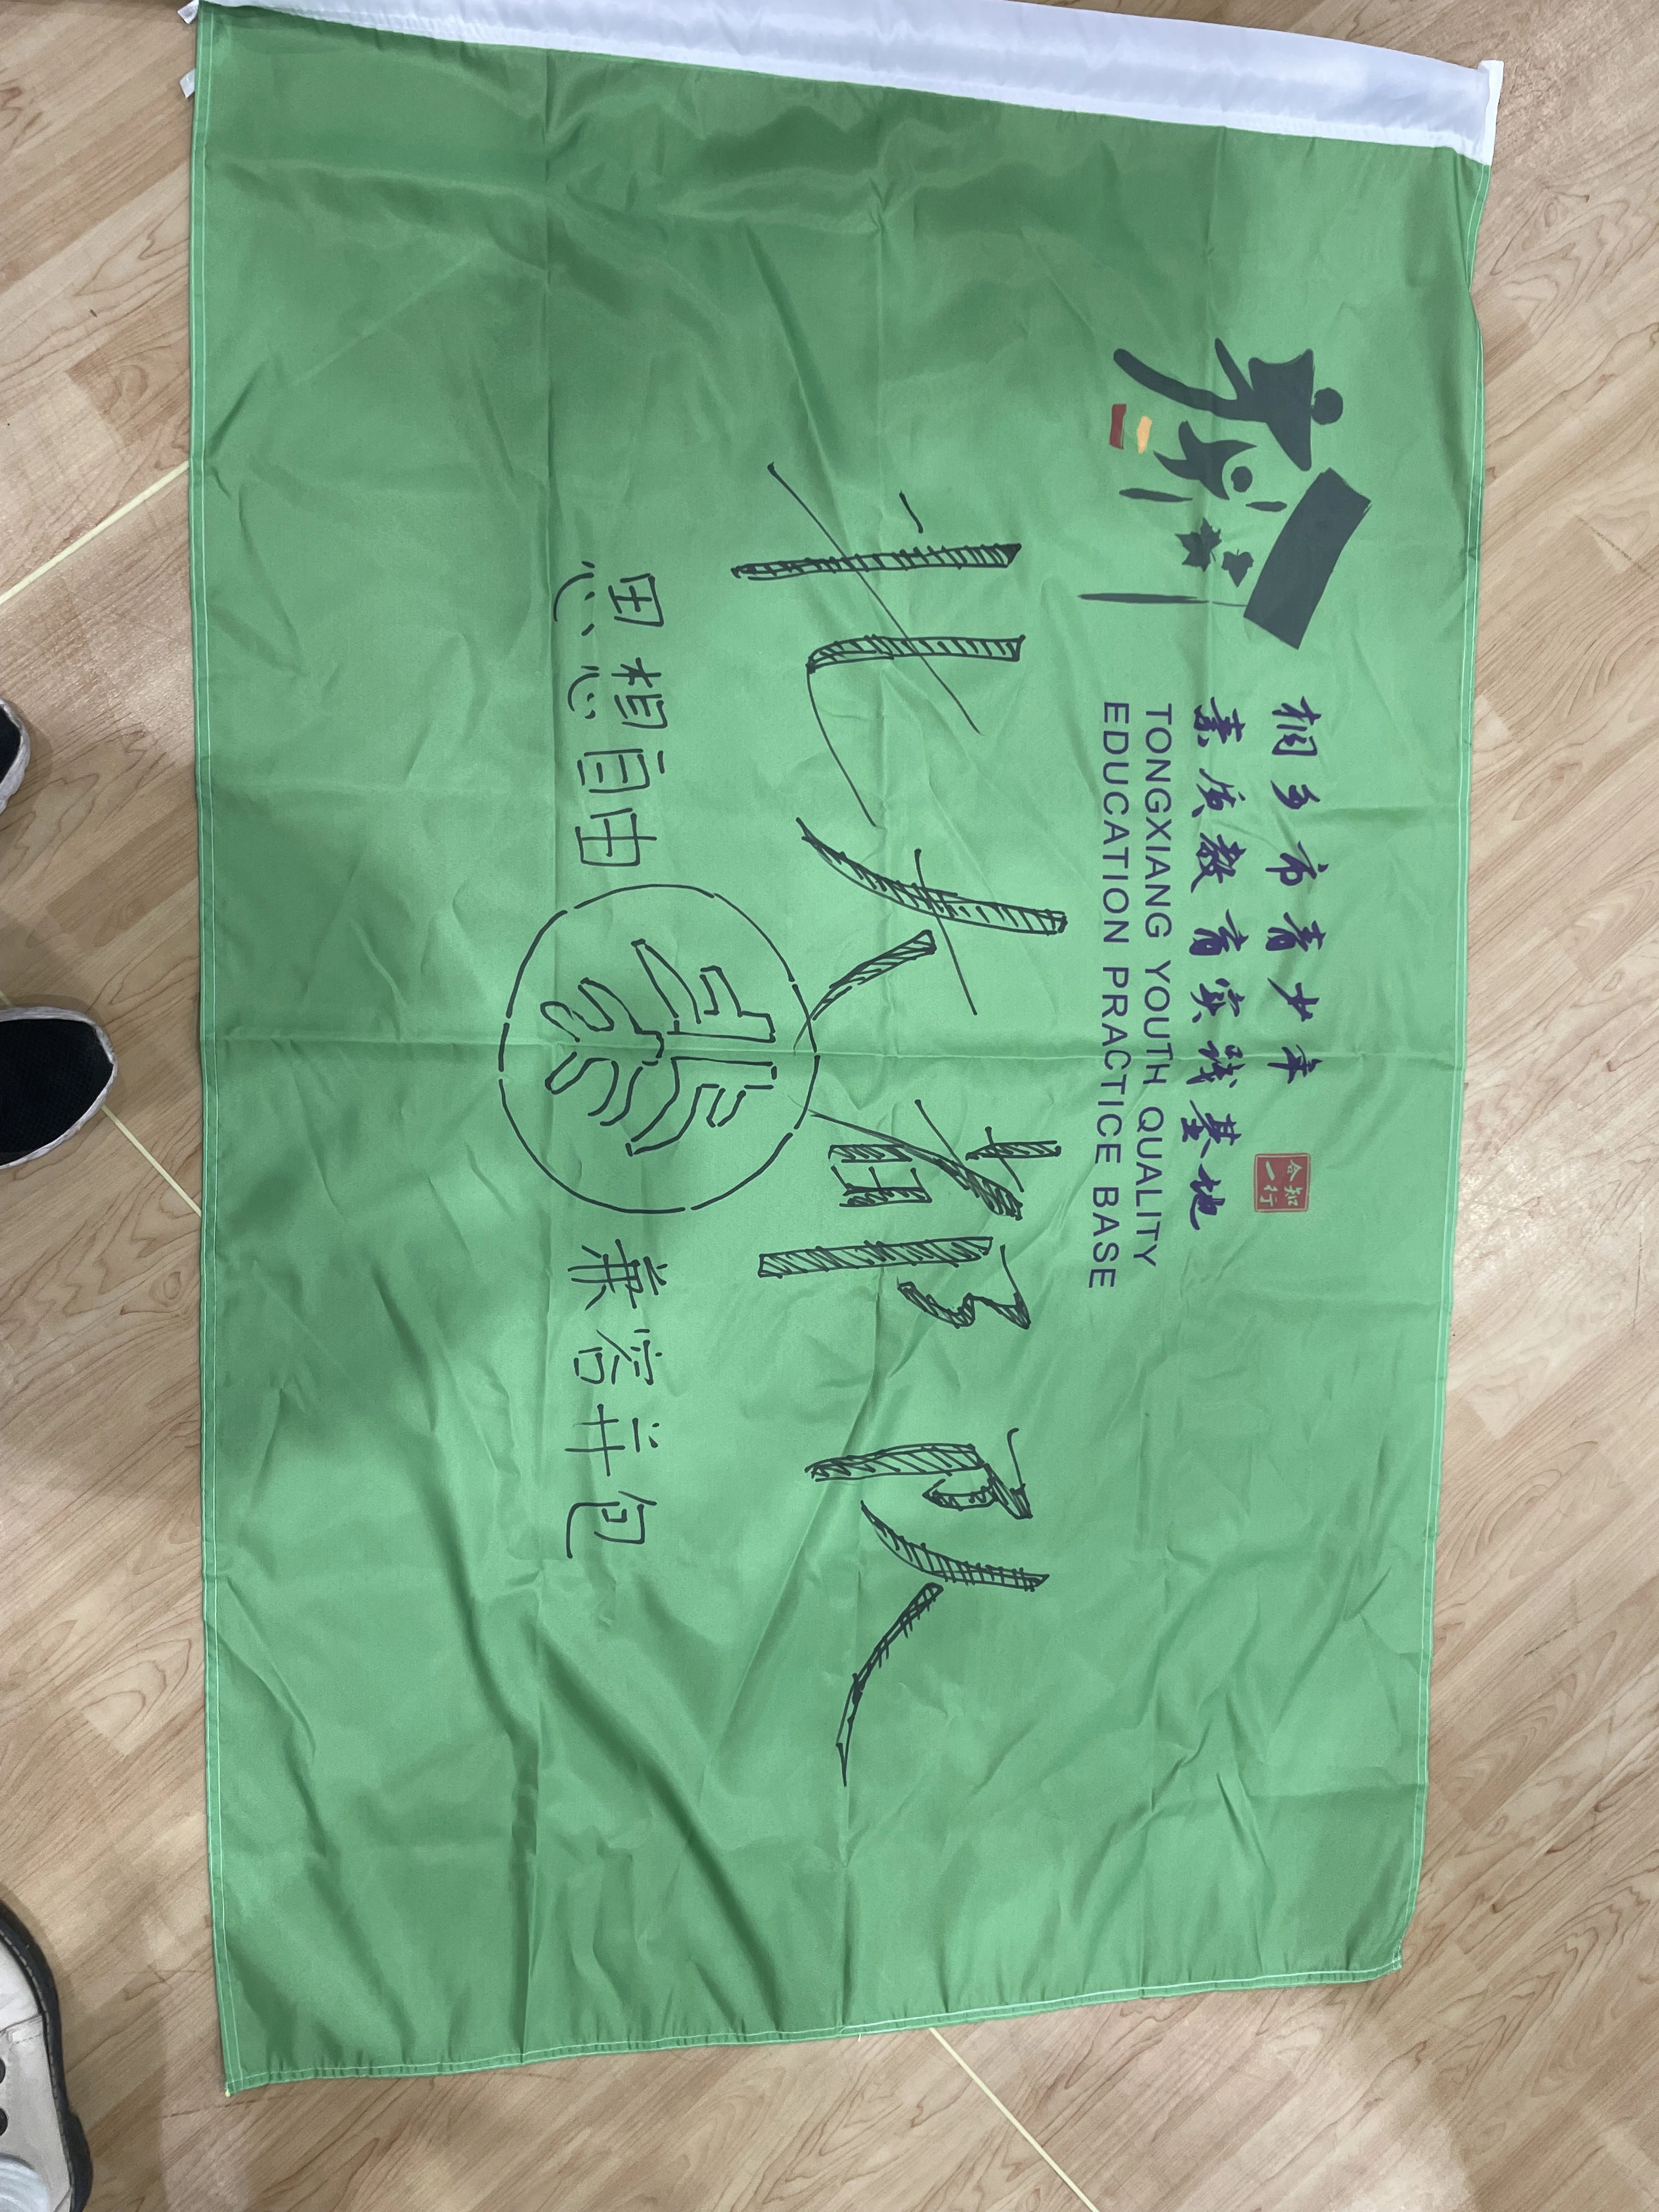 桐乡市青少年
知行合一
素质教育实践基地
TONGXIANG YOUTH QUALITY
EDUCATION PRACTICE BASE
北大都队
思想自由 北大 兼容并包